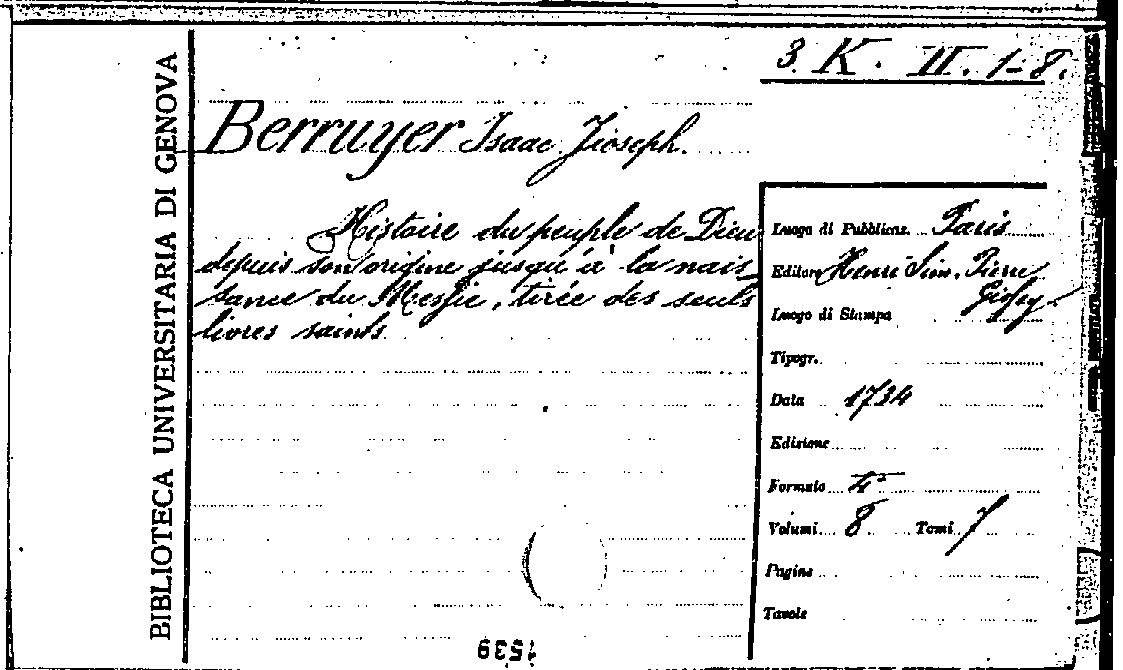 BIBLIOTECA UNIVERSITARIA DI GENOVA
3. K. II. 1-8.
Berruyer Isaac Jioseph.
Histoire du peuple de Dieu
depuis son origine jusqu'à la nais
sance du Messie, tirée des seuls
livres saints.
Luogo di Pubblicaz. Paris
Editore Henri Sim. Pierre
Gissey
Luogo di Stampa
Tipogr.
Data 1734
Edizione
Formato 4°
Volumi 8 Tomi 7
Pagine
Tavole
1539